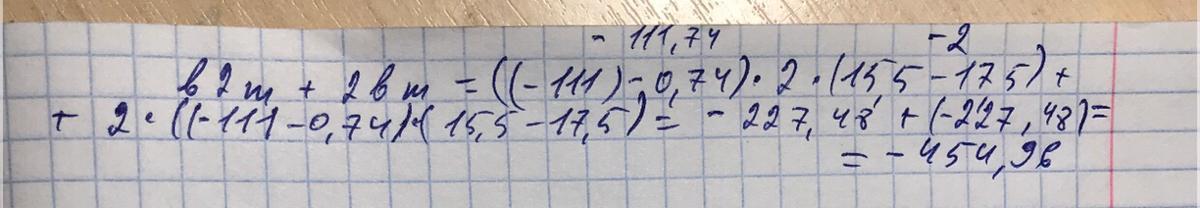 - 111,74 -2
в2m + 2вm = ((-111)-0,74)·2·(15,5-17,5)+
+ 2·((-111)-0,74)·(15,5-17,5)= - 227,48 + (-227,48)=
= - 454,96